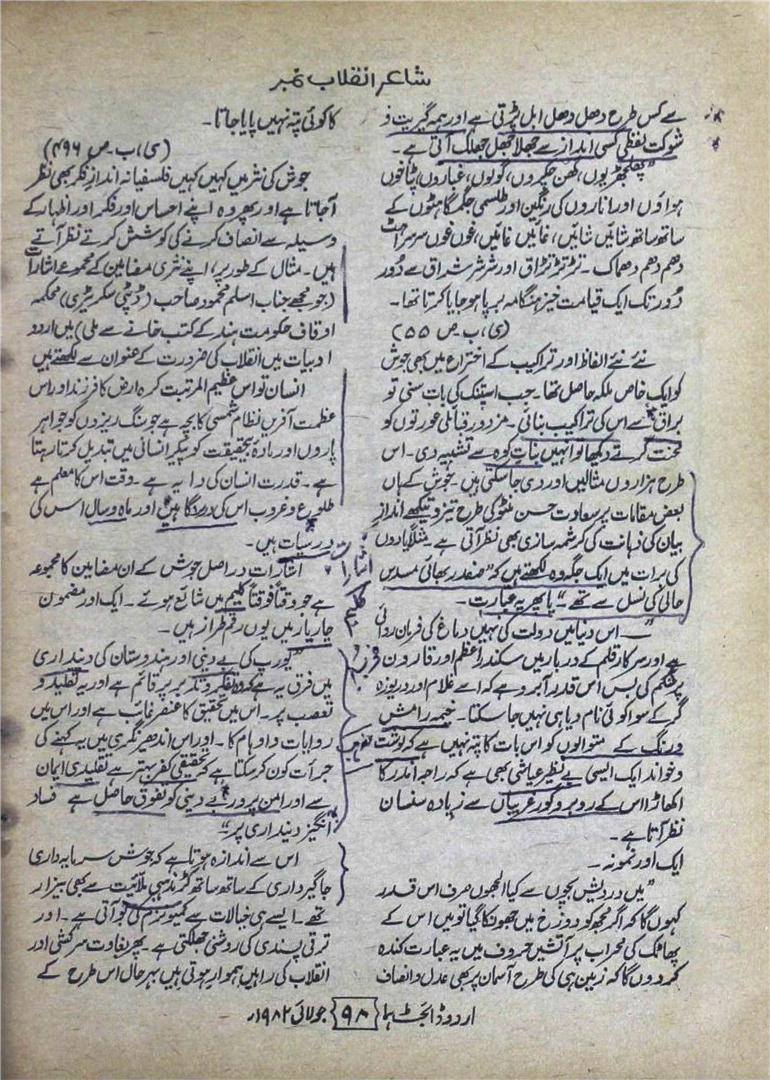 شاعر انقلاب نمبر
سے کس طرح دھل دھل ابل پڑتی ہے اور ہمہ گیریت و
شوکت لفظی کسی انداز سے جھلا جھل جھلک آتی ہے۔
”پھلجھڑیوں، گھن چکروں، گولوں، غباروں، پٹاخوں
ہواؤں اور اناروں کی رنگین اور طلسمی جگمگاہٹوں کے
ساتھ ساتھ شائیں شائیں، غائیں غائیں، غوں غوں سرسراہٹ
دھم دھم دھماک۔ تڑ تڑ تڑاق اور شرشر شراق سے دُور
دُور تک ایک قیامت خیز ہنگامہ برپا ہو جایا کرتا تھا۔
(ی، ب۔ ص ۵۵)
نئے نئے الفاظ اور تراکیب کے اختراع میں بھی جوش
کو ایک خاص ملکہ حاصل تھا۔ جب اسپٹنک کی بات سنی تو
براق سے اس کی تراکیب بنائی۔ مزدور قبائلی عورتوں کو
محنت کرتے دیکھا تو انہیں بنات کوہ سے تشبیہ دی۔ اس
طرح ہزاروں مثالیں اور دی جا سکتی ہیں۔ جوش کے ہاں
بعض مقامات پر سعادت حسن منٹو کی طرح تیز و تیکھے انداز
بیان کی ذہانت کی کرشمہ سازی بھی نظر آتی ہے مثلاً یاروں
کی برات میں ایک جگہ وہ لکھتے ہیں کہ ”صفدر بھائی مسدس
حالی کی نسل سے تھے۔“ یا پھر یہ عبارت۔
”— اس دنیا میں دولت کی نہیں دماغ کی فرمان روائی
ہے اور سرکار قلم کے دربار میں سکندر اعظم اور قارون
پر شکم کی بس اس قدر آبرو ہے کہ اسے غلام اور دریوزہ
گر کے سوا کوئی نام دیا ہی نہیں جا سکتا۔ خیمہ رامش
و رنگ کے متوالوں کو اس بات کا پتہ نہیں ہے کہ نوشت
و خواند ایک ایسی بے نظیر عیاشی بھی ہے کہ راجہ اندر کا
اکھاڑا اس کے روبرو گور غریباں سے زیادہ سنسان
نظر آتا ہے۔
ایک اور نمونہ۔
”میں درویش بچوں سے کیا الجھوں صرف اس قدر
کہوں گا کہ اگر مجھ کو دوزخ میں جھونکا گیا تو میں اس کے
پھاٹک کی محراب پر آتشیں حروف میں یہ عبارت کندہ
کر دوں گا کہ زمین ہی کی طرح آسمان پر بھی عدل و انصاف
کا کوئی پتہ نہیں پایا جاتا۔
(ی، ب۔ ص ۴۹۶)
جوش کی نثر میں کہیں کہیں فلسفیانہ انداز فکر بھی نظر
آ جاتا ہے اور پھر وہ اپنے احساس اور فکر اور اظہار کے
وسیلہ سے انصاف کرنے کی کوشش کرتے نظر آتے
ہیں۔ مثال کے طور پر، اپنے نثری مضامین کے مجموعے اشارات
(جو مجھے جناب اسلم محمود صاحب (ڈپٹی سکریٹری) محکمہ
اوقاف حکومت ہند کے کتب خانے سے ملی) میں اردو
ادبیات میں انقلاب کی ضرورت کے عنوان سے لکھتے ہیں
انسان تو اس عظیم المرتبت کرہ ارض کا فرزند اور اس
عظمت آفریں نظام شمسی کا بچہ ہے جو سنگ ریزوں کو جواہر
پاروں اور مادہ بے حقیقت کو پیکر انسانی میں تبدیل کرتا رہتا
ہے۔ قدرت انسان کی دایہ ہے۔ وقت اس کا معلم ہے
طلوع و غروب اس کی درسگاہیں اور ماہ و سال اس کی
درسیات ہیں۔
اشارات
اشارات دراصل جوش کے ان مضامین کا مجموعہ
ہے جو وقتاً فوقتاً کلیم میں شائع ہوئے۔ ایک اور مضمون
کلیم
چار یار میں یوں رقم طراز ہیں۔
”یورپ کی بے دینی اور ہندوستان کی دینداری
میں فرق یہ ہے کہ وہ تفکر و تدبر پر قائم ہے اور یہ تقلید و
تعصب پر۔ اس میں تحقیق کا عنصر غالب ہے اور اس میں
روایات و اوہام کا۔ اور اس اندھیر نگری میں یہ کہنے کی
جرأت کون کر سکتا ہے کہ تحقیقی کفر بہتر ہے تقلیدی ایمان
سے اور امن پرور بے دینی کو تفوق حاصل ہے فساد
انگیز دینداری پر۔“
اس سے اندازہ ہوتا ہے کہ جوش سرمایہ داری
جاگیرداری کے ساتھ ساتھ کٹر مذہبی ملائیت سے بھی بیزار
تھے۔ ایسے ہی خیالات سے کمیونزم کی بو آتی ہے۔ اور
ترقی پسندی کی روشنی جھلکتی ہے۔ پھر بغاوت سرکشی اور
انقلاب کی راہیں ہموار ہوتی ہیں بہرحال اس طرح کے
اردو ڈائجسٹ ہما ۹۸ جولائی ۱۹۸۲ء